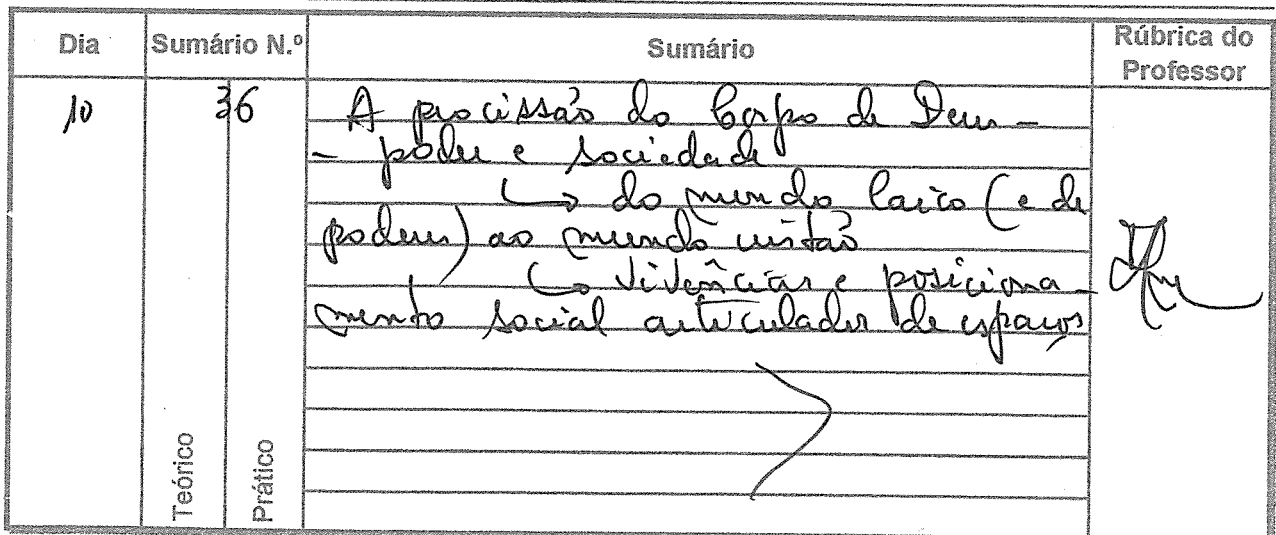 Dia Sumário N.º Sumário Rúbrica do Professor
10 36 A procissão do Corpo de Deus –
– poder e sociedade
↳ do mundo laico (e de
poderes) ao mundo cristão
↳ vivências e posiciona-
mento social articulador de espaços
Teórico
Prático